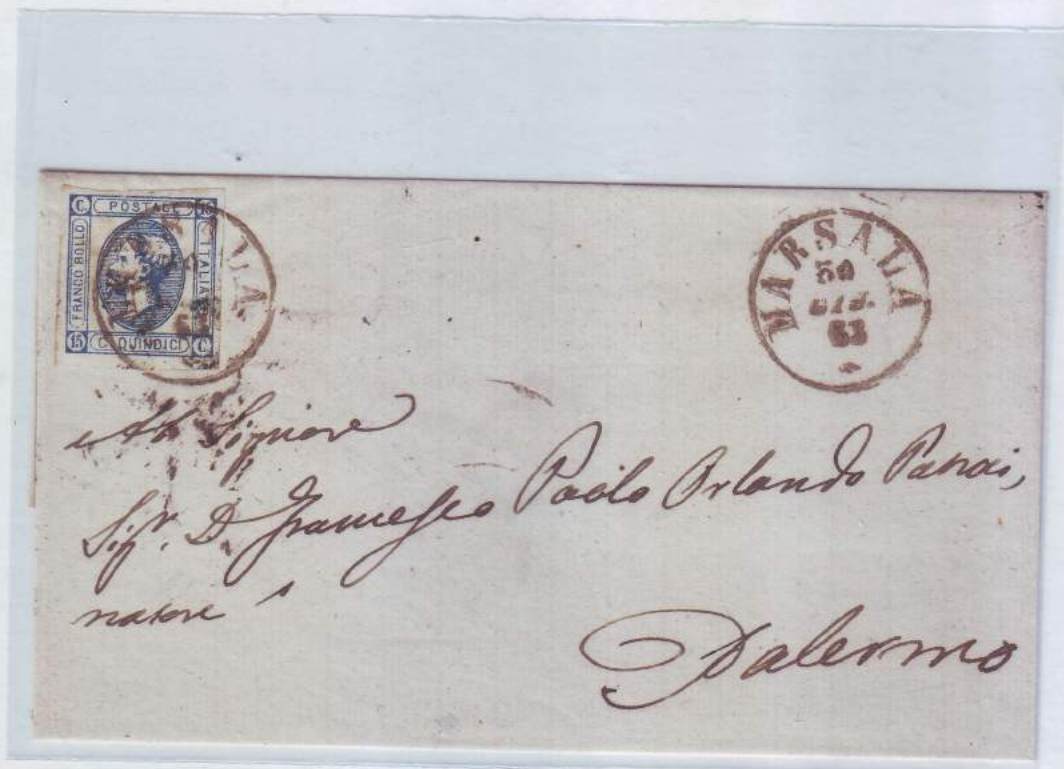 C POSTALE 15
FRANCO BOLLO
ITALIANO
15 C. QUINDICI C
MARSALA
MARSALA
30
GIU.
63
Al Signore
Sigr. D. Francesco Paolo Orlando
Palermo